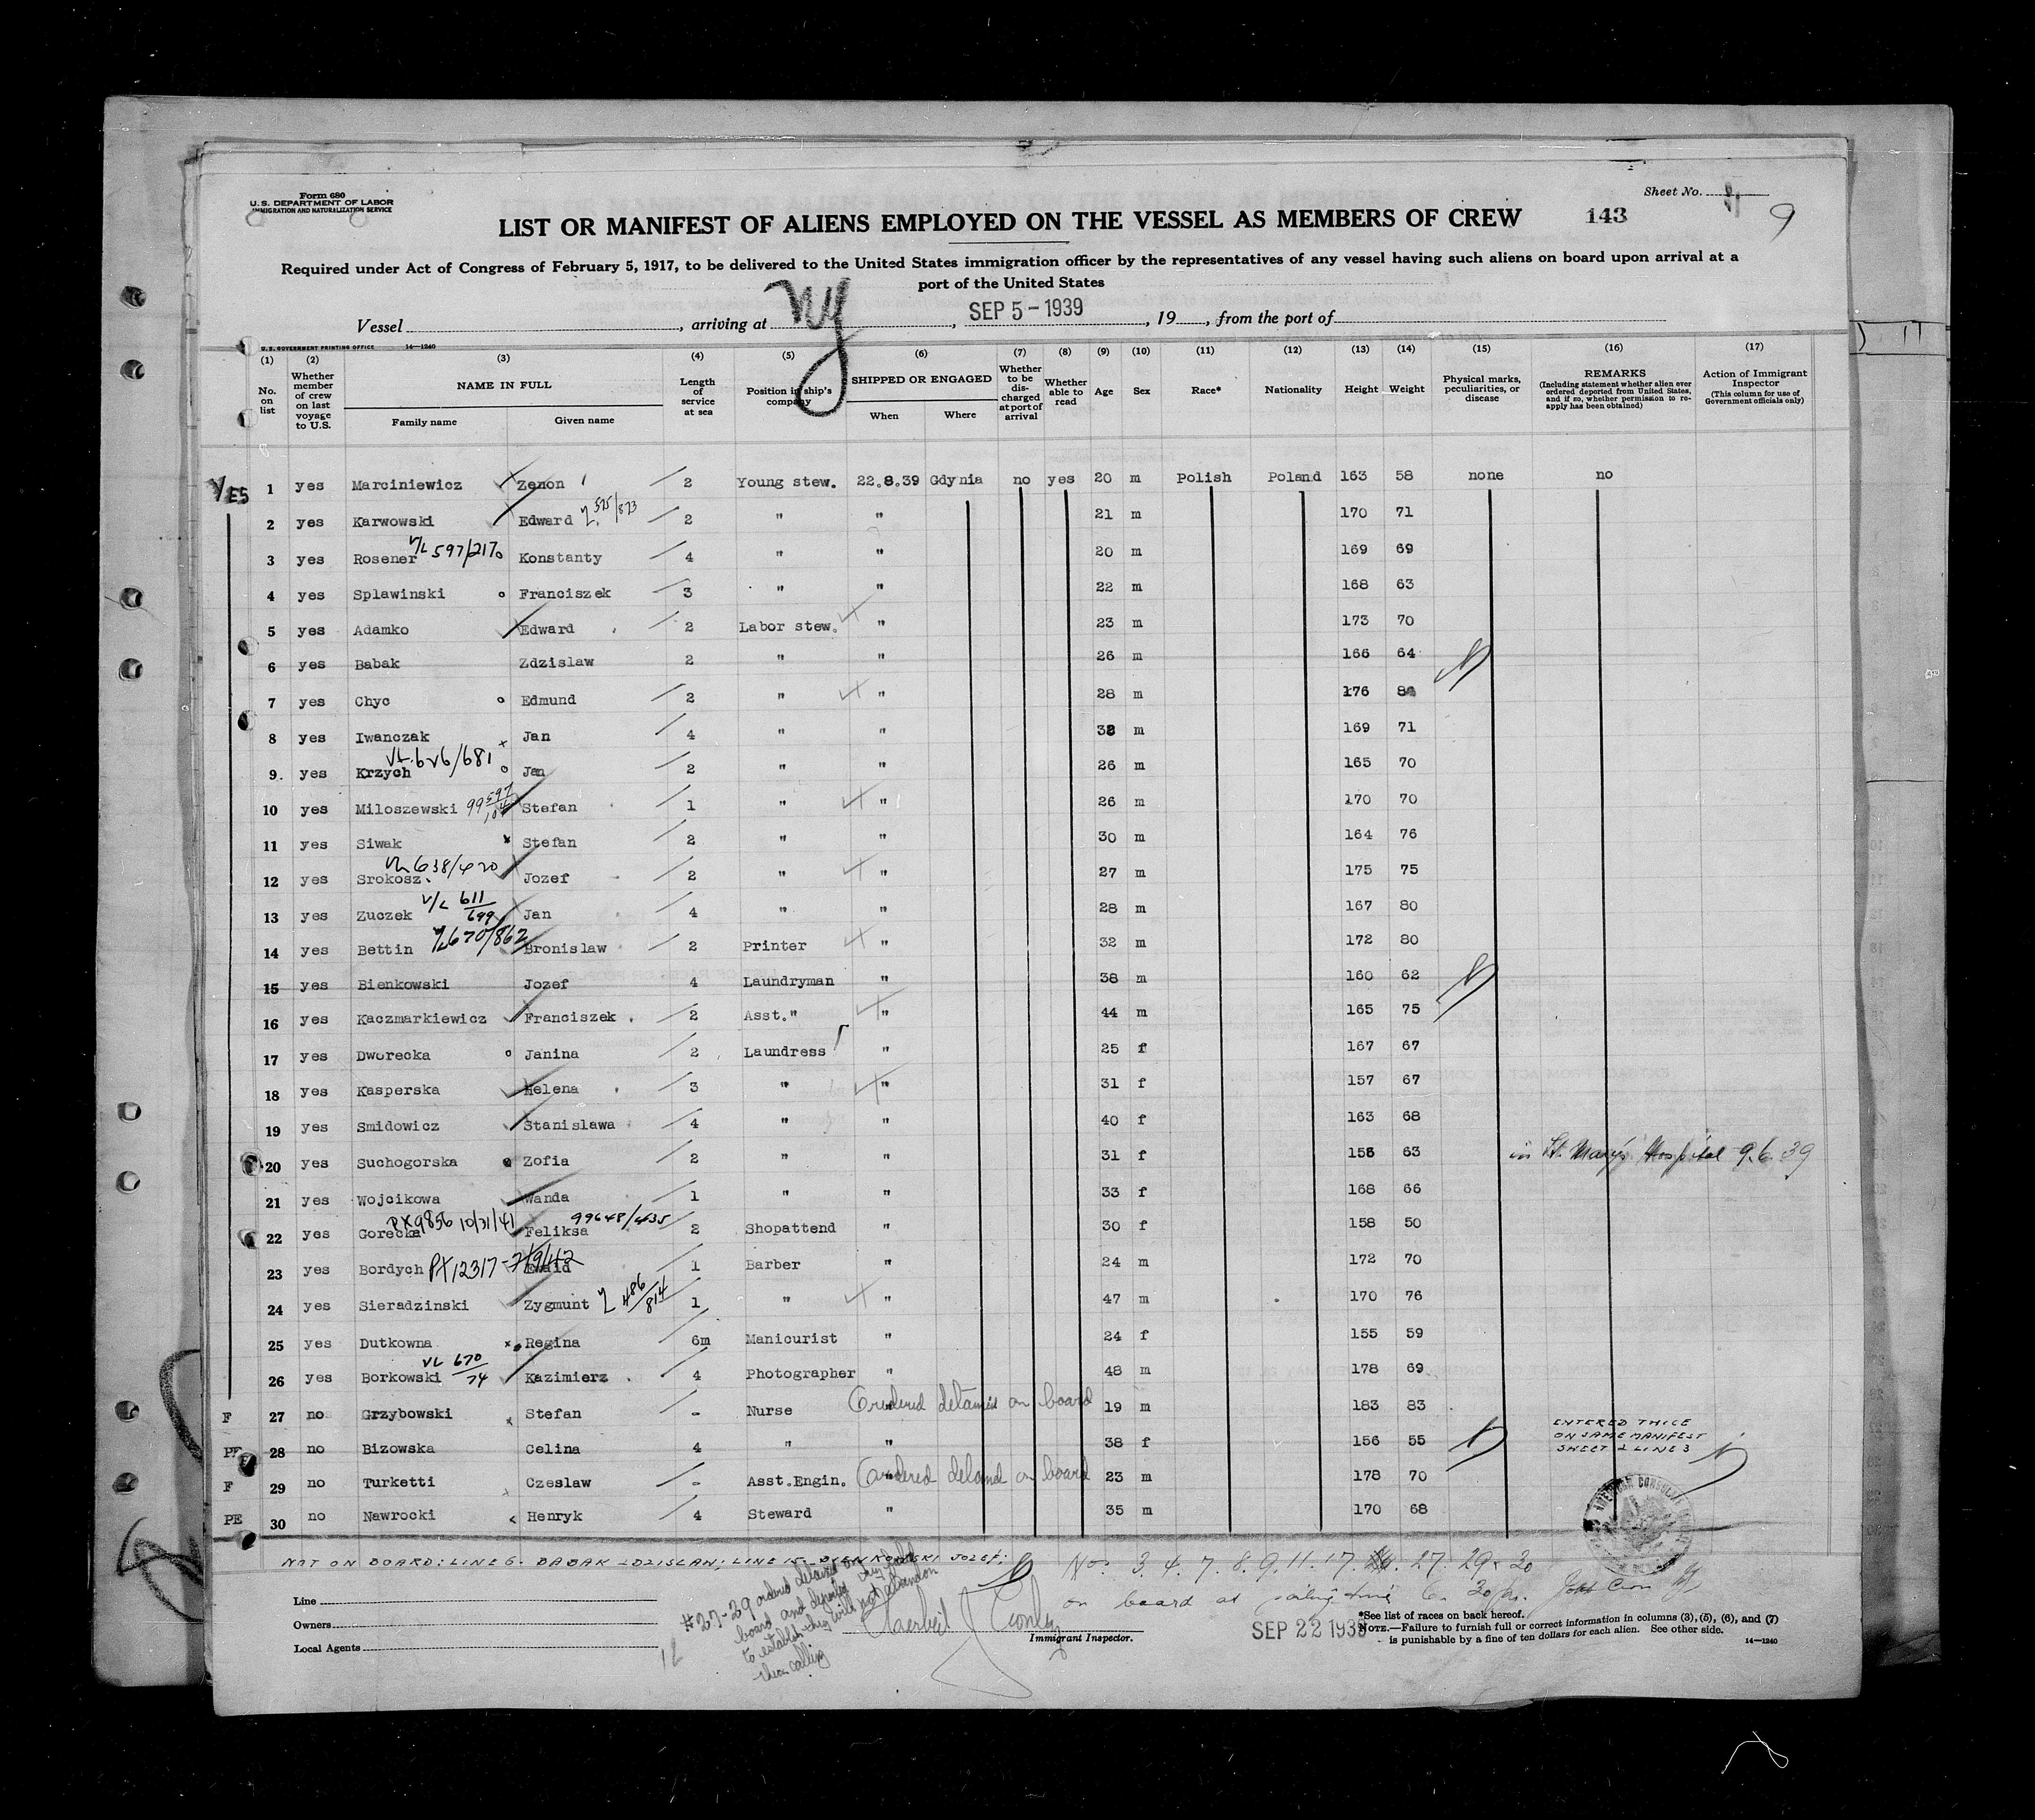 Form 680
U.S. DEPARTMENT OF LABOR
IMMIGRATION AND NATURALIZATION SERVICE
Sheet No.
9
LIST OR MANIFEST OF ALIENS EMPLOYED ON THE VESSEL AS MEMBERS OF CREW 143
Required under Act of Congress of February 5, 1917, to be delivered to the United States immigration officer by the representatives of any vessel having such aliens on board upon arrival at a
port of the United States
Vessel , arriving at NY , SEP 5 - 1939 , 19 , from the port of
U.S. GOVERNMENT PRINTING OFFICE 14—1240
(1) (2) (3) (4) (5) (6) (7) (8) (9) (10) (11) (12) (13) (14) (15) (16) (17)
No. on list
Whether member of crew on last voyage to U.S.
NAME IN FULL
Family name
Given name
Length of service at sea
Position in ship's company
SHIPPED OR ENGAGED
When
Where
Whether to be discharged at port of arrival
Whether able to read
Age
Sex
Race*
Nationality
Height
Weight
Physical marks, peculiarities, or disease
REMARKS
(Including statement whether alien ever ordered deported from United States, and if so, whether permission to reapply has been obtained)
Action of Immigrant Inspector
(This column for use of Government officials only)
YES 1 yes Marciniewicz Zenon 2 Young stew. 22.8.39 Gdynia no yes 20 m Polish Poland 163 58 none no
2 yes Karwowski Edward 2 " " 21 m 170 71
3 yes Rosener V/L 597/217 Konstanty 4 " " 20 m 169 69
4 yes Splawinski Franciszek 3 " " 22 m 168 63
5 yes Adamko Edward 2 Labor stew. " 23 m 173 70
6 yes Babak Zdzislaw 2 " " 26 m 166 64
7 yes Chyc Edmund 2 " " 28 m 176
8 yes Iwanczak Jan 4 " " 38 m 169 71
9. yes Krzych VL.626/681 Jan 2 " " 26 m 165 70
10 yes Miloszewski Stefan 1 " " 26 m 170 70
11 yes Siwak Stefan 2 " " 30 m 164 76
12 yes Srokosz. VL 638/420 Jozef 2 " " 27 m 175 75
13 yes Zuczek V/L 611/699 Jan 4 " " 28 m 167 80
14 yes Bettin V/L 670/862 Bronislaw 2 Printer " 32 m 172 80
15 yes Bienkowski Jozef 4 Laundryman " 38 m 160 62
16 yes Kaczmarkiewicz Franciszek 2 Asst." " 44 m 165 75
17 yes Dworecka Janina 2 Laundress " 25 f 167 67
18 yes Kasperska Helena 3 " " 31 f 157 67
19 yes Smidowicz Stanislawa 4 " " 40 f 163 68
20 yes Suchogorska Zofia 2 " " 31 f 156 63 in St. Mary's Hospital 9.6.39
21 yes Wojcikowa Wanda 1 " " 33 f 168 66
22 yes Gorecka PX9856 10/31/41 Feliksa 99648/435 2 Shopattend " 30 f 158 50
23 yes Bordych PX12317 1 Barber " 24 m 172 70
24 yes Sieradzinski Zygmunt 486/814 1 " " 47 m 170 76
25 yes Dutkowna Regina 6m Manicurist " 24 f 155 59
26 yes Borkowski VL 670/74 Kazimierz 4 Photographer " 48 m 178 69
F 27 no Grzybowski Stefan - Nurse " Ordered detained on board 19 m 183 83
PE 28 no Bizowska Celina 4 " " 38 f 156 55 ENTERED TWICE ON SAME MANIFEST SHEET 2 LINE 3
F 29 no Turketti Czeslaw - Asst.Engin. " Ordered detained on board 23 m 178 70
PE 30 no Nawrocki Henryk 4 Steward " 35 m 170 68
AMERICAN CONSULATE
NOT ON BOARD: LINE 6. BABAK ZDZISLAW; LINE 15. BIENKOWSKI JOZEF;
No. 3. 4. 7. 8. 9. 11. 17. 27. 29. 30
on board at sailing time
#27-29 ordered detained on
board and deported
to establish they will not abandon
their calling
Line
Owners
Local Agents
Immigrant Inspector.
SEP 22 1939
*See list of races on back hereof.
NOTE.—Failure to furnish full or correct information in columns (3), (5), (6), and (7)
is punishable by a fine of ten dollars for each alien. See other side.
14—1240